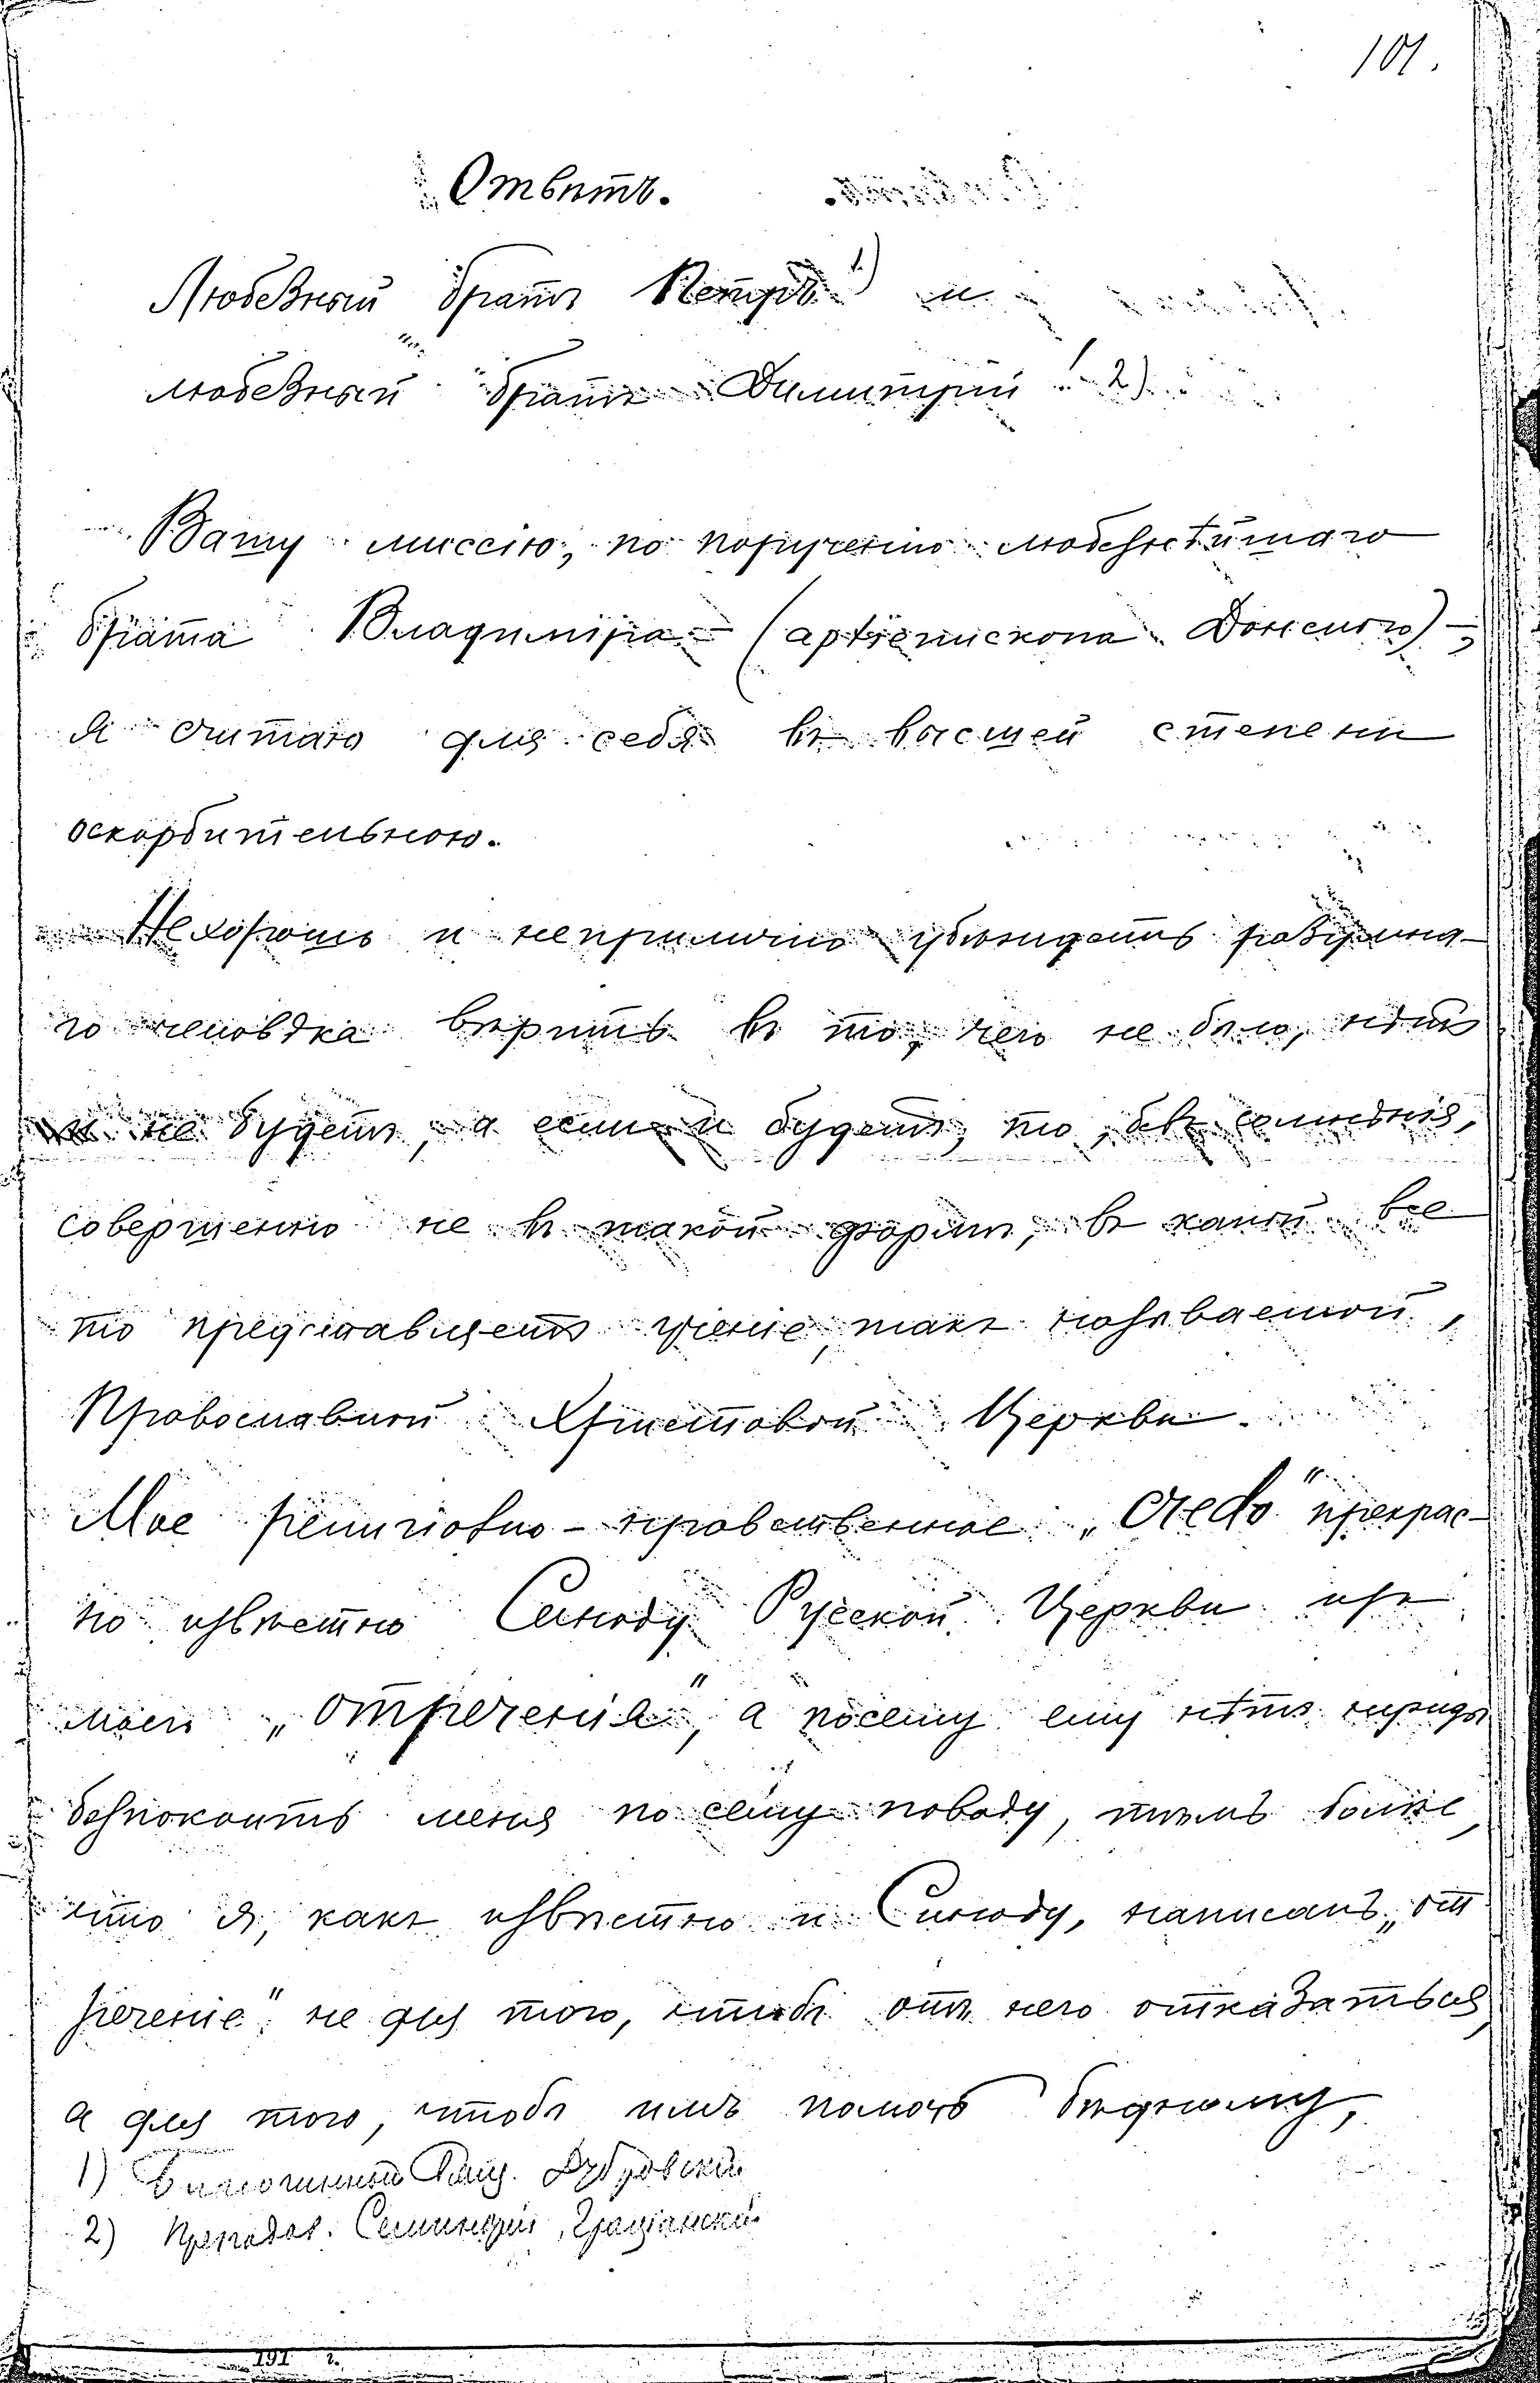 101.
Отвѣтъ.
Любезный братъ Петръ 1) и
любезный братъ Димитрій! 2)
Вашу миссію, по порученію любезнѣйшаго
брата Владиміра – (архіепископа Донского) –,
я считаю для себя въ высшей степени
оскорбительною.
Нехорошо и неприлично убѣждать разумна-
го человѣка вѣрить въ то, чего не было, нѣтъ
и не будетъ, а если и будетъ, то, безъ сомнѣнія,
совершенно не въ такой формѣ, въ какой все
то представляетъ ученіе, такъ называемой,
Православной Христовой Церкви.
Мое религіозно-нравственное „credo" прекрас-
но извѣстно Синоду Русской Церкви изъ
моего „отреченія", а посему ему нѣтъ нужды
безпокоить меня по сему поводу, тѣмъ болѣе,
что я, какъ извѣстно и Синоду, написалъ „от
реченіе" не для того, чтобъ отъ него отказаться,
а для того, чтобъ имъ помочь бѣдному,
1) Благочинный Свящ.
2) Преподав. Семинаріи, Граціанскій